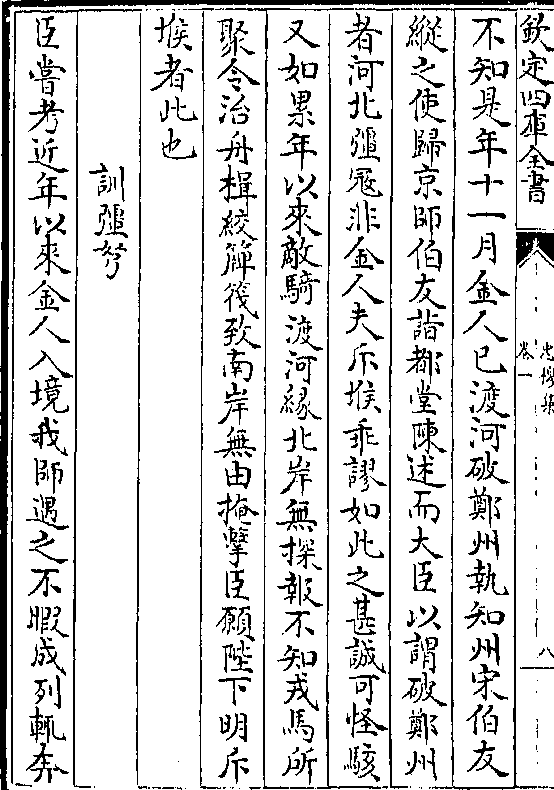 欽定四庫全書
忠愍集
卷一
八
不知是年十一月金人已渡河破鄭州執知州宋伯友
縱之使歸京師伯友詣都堂陳述而大臣以謂破鄭州
者河北彊冦非金人夫斥堠乖謬如此之甚誠可怪駭
又如累年以來敵騎渡河緣北岸無探報不知戎馬所
聚令治舟楫絞簰筏致南岸無由掩擊臣願陛下明斥
堠者此也
訓彊弩
臣嘗考近年以來金人入境我師遇之不暇成列輒奔